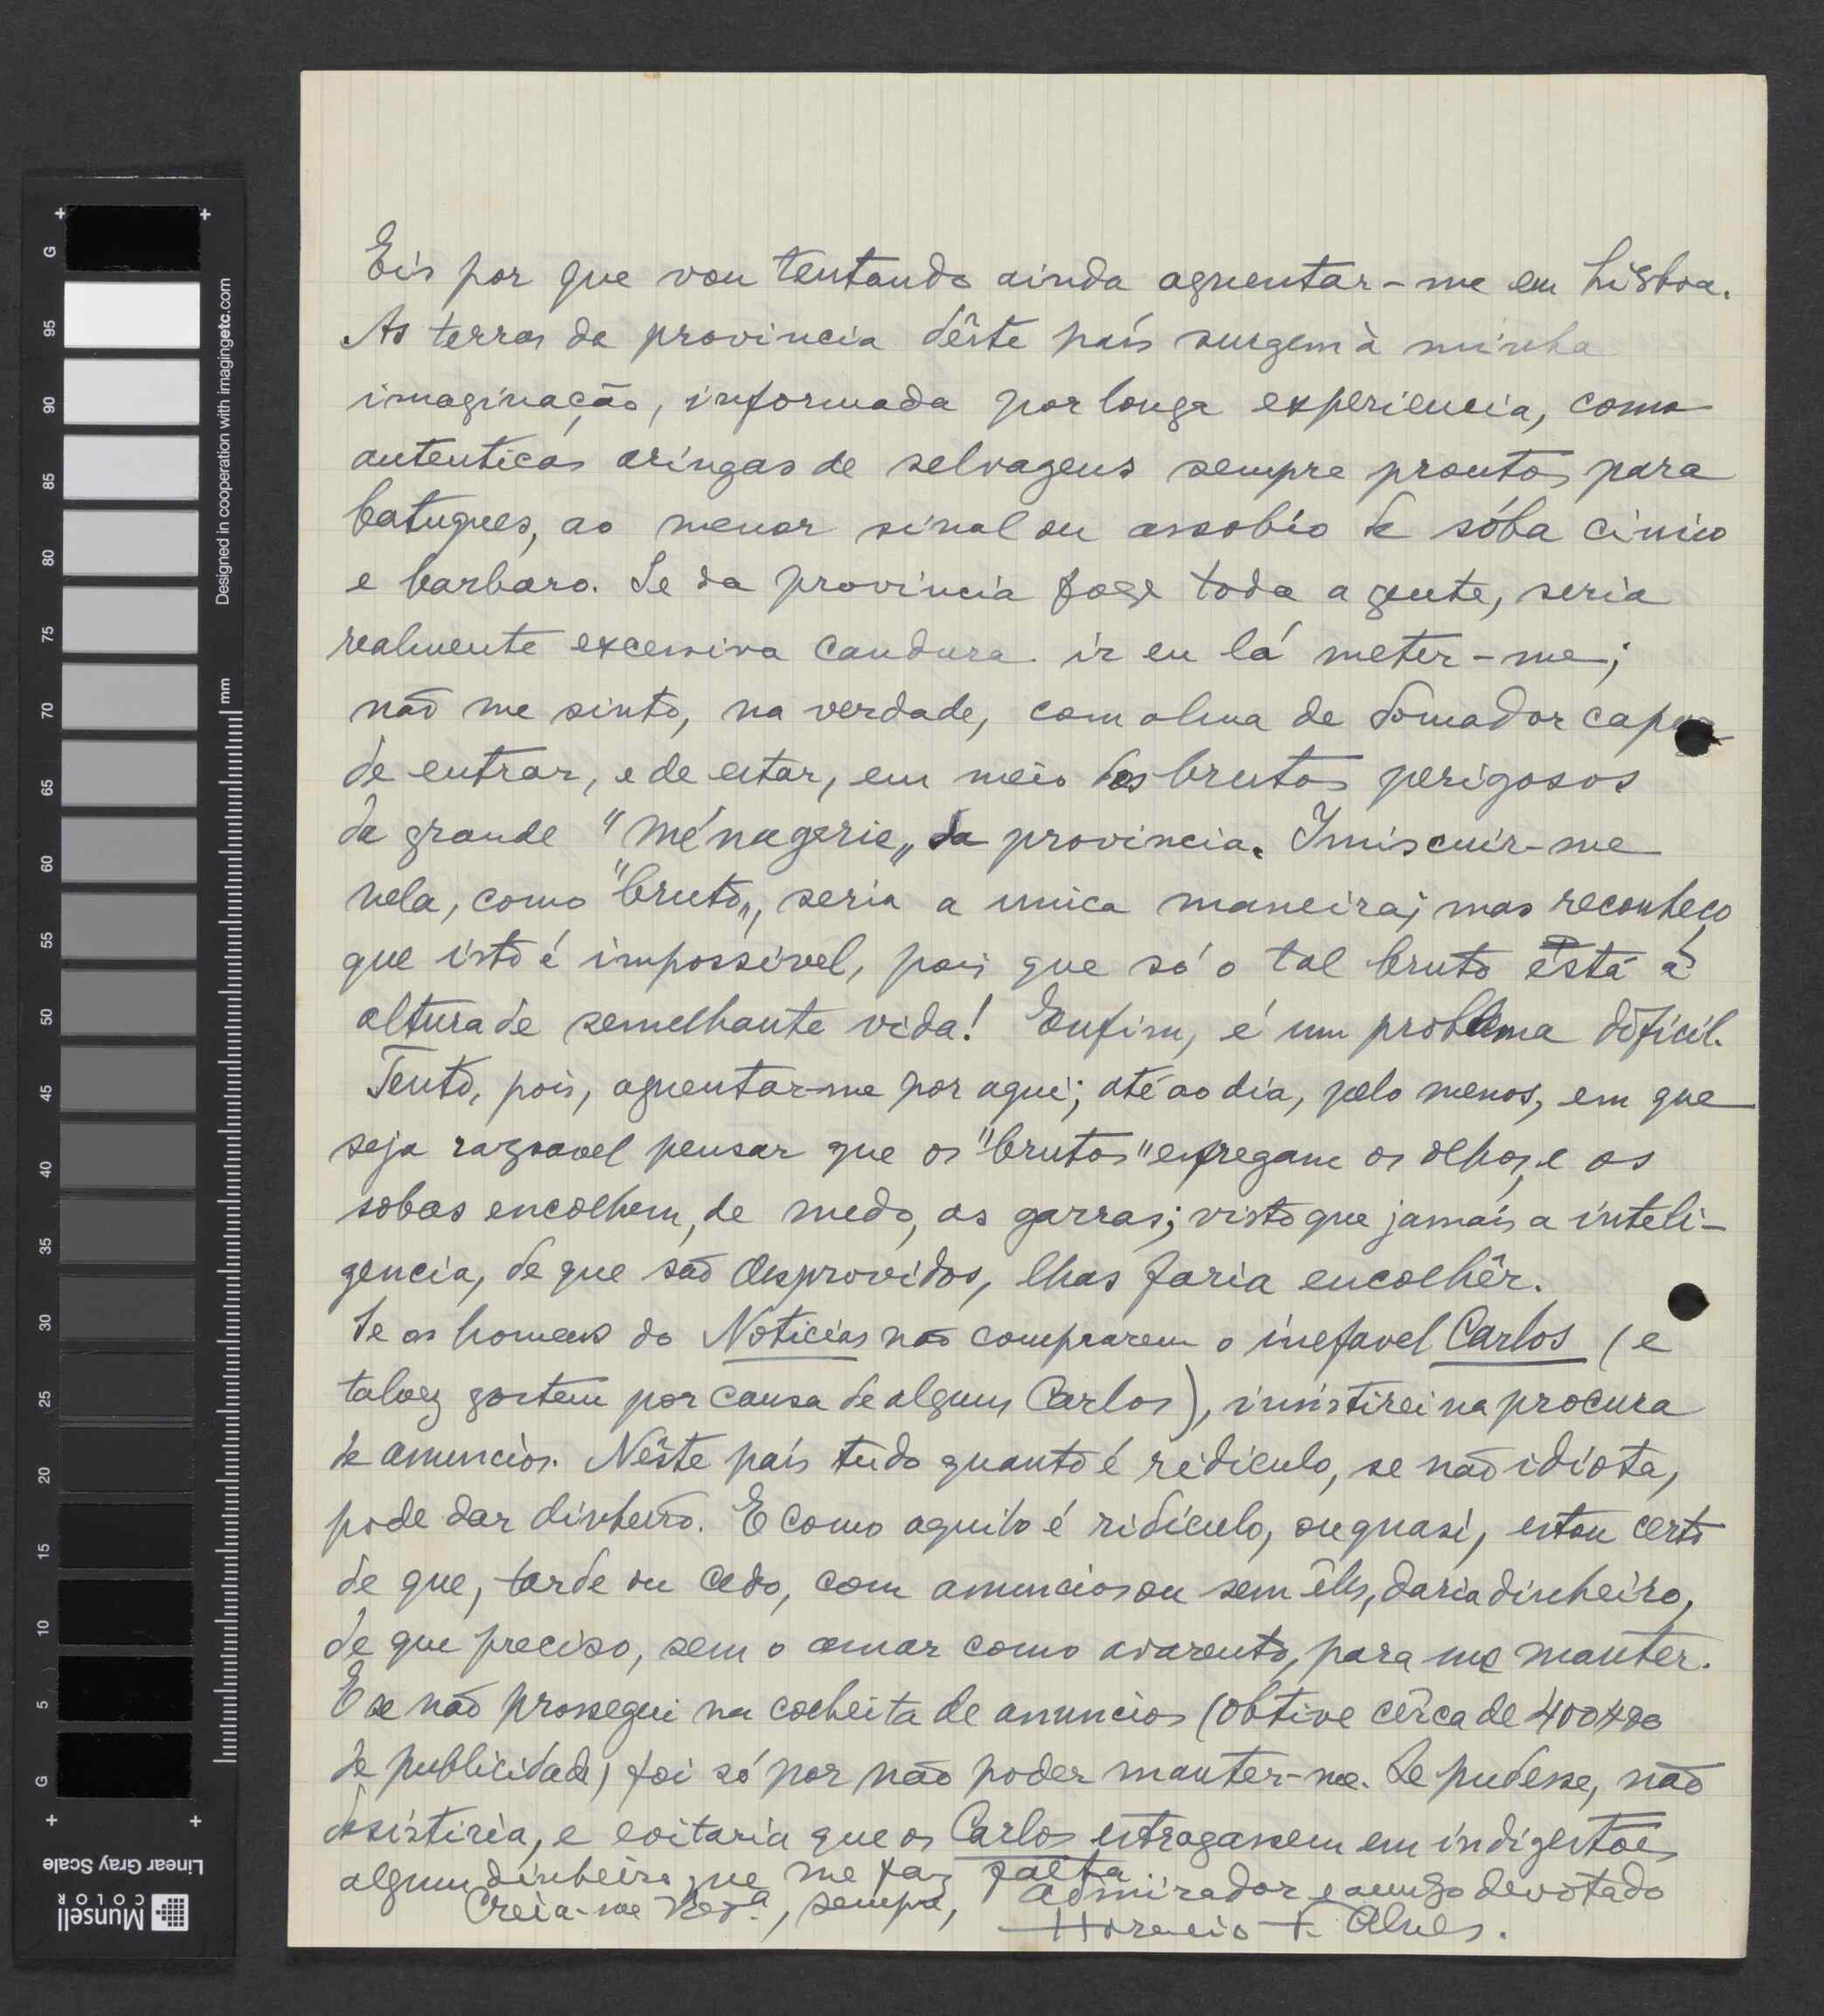 Eis por que vou tentando ainda aguentar-me em Lisboa.
As terras da provincia dêste país surgem à minha
imaginação, informada por longa experiencia, como
autenticas aringas de selvagens sempre prontos para
batuques, ao menor sinal ou assobio de sóba cinico
e barbaro. Se da provincia foge toda a gente, seria
realmente excessiva candura ir eu lá meter-me;
não me sinto, na verdade, com alma de domador capaz
de entrar, e de estar, em meio dos brutos perigosos
da grande "ménagerie„ da provincia. Imiscuir-me
nela, como "bruto„, seria a unica maneira; mas reconheço
que isto é impossível, pois que só o tal bruto está à
altura de semelhante vida! Enfim, é um problema difícil.
Tento, pois, aguentar-me por aqui; até ao dia, pelo menos, em que
seja razoavel pensar que os "brutos" esfregam os olhos, e os
sobas encolhem, de medo, as garras; visto que jamais a inteli-
gencia, de que são desprovidos, lhas faria encolhêr.
Se os homens do Noticias não comprarem o inefavel Carlos (e
talvez gostem por causa de alguns Carlos), insistirei na procura
de anuncios. Nêste país tudo quanto é ridiculo, se não idiota,
pode dar dinheiro. E como aquilo é ridículo, ou quasi, estou certo
de que, tarde ou cedo, com anuncios ou sem êles, daria dinheiro,
de que preciso, sem o amar como avarento, para me manter.
E se não prossegui na colheita de anuncios (obtive cêrca de 400$00
de publicidade) foi só por não poder manter-me. Se pudesse, não
desistiria, e evitaria que os Carlos estragassem em indigestões
algum dinheiro que me faz falta.
Creia-me V. Ex.ª, sempre, admirador e amigo devotado
Horacio F. Alves.
G 95 90 85 80 75 70 65 60 55 50 45 40 35 30 25 20 15 10 5 G
Designed in cooperation with imagingetc.com
mm
Linear Gray Scale
Munsell
COLOR